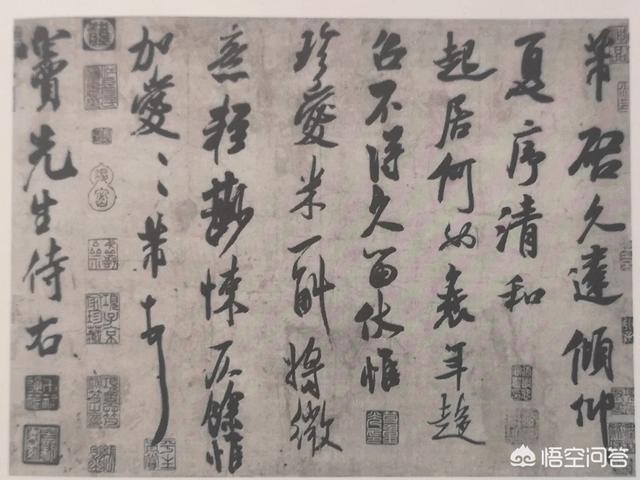 芾启久違傾仰
夏序清和
起居何如衰年趍
召不得久留伏惟
珍愛米一斛將微
意輕尠悚仄餘惟
加愛、、芾頓首
竇先生侍右
悟空问答